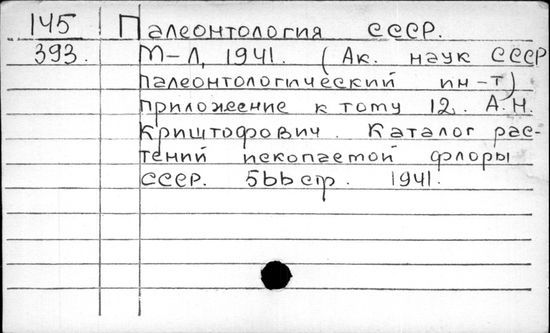 145 Палеонтология СССР.
393. М-Л, 1941. (Ак. наук СССР
палеонтологический ин-т)
приложение к тому 12. А.Н.
Криштофович. Каталог рас-
тений ископаемой флоры
СССР. 566 стр. 1941.